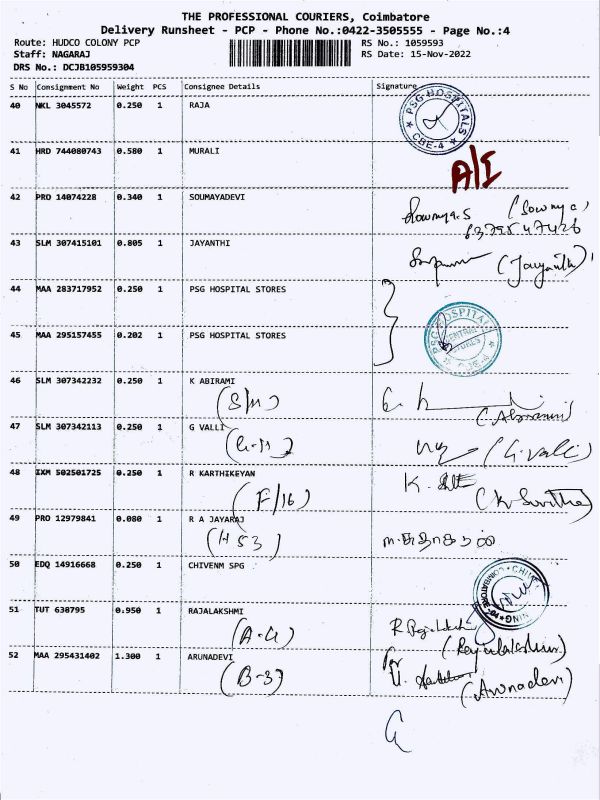 THE PROFESSIONAL COURIERS, Coimbatore
Delivery Runsheet - PCP - Phone No.:0422-3505555 - Page No.:4
Route: HUDCO COLONY PCP RS No.: 1059593
Staff: NAGARAJ RS Date: 15-Nov-2022
DRS No.: DCJB105959304
S No Consignment No Weight PCS Consignee Details Signature
40 NKL 3045572 0.250 1 RAJA
PSG HOSPITALS
CBE-4
41 HRD 744080743 0.580 1 MURALI
A/I
42 PRO 14074228 0.340 1 SOUMAYADEVI
43 SLM 307415101 0.805 1 JAYANTHI
(Jayanthi)
44 MAA 283717952 0.250 1 PSG HOSPITAL STORES
45 MAA 295157455 0.202 1 PSG HOSPITAL STORES
PSG HOSPITAL
CENTRAL
STORES
46 SLM 307342232 0.250 1 K ABIRAMI
47 SLM 307342113 0.250 1 G VALLI
(G.Valli)
48 IXM 502501725 0.250 1 R KARTHIKEYAN
(F/16)
49 PRO 12979841 0.080 1 R A JAYARAJ
(H53)
50 EDQ 14916668 0.250 1 CHIVENM SPG
51 TUT 638795 0.950 1 RAJALAKSHMI
(A-4)
52 MAA 295431402 1.300 1 ARUNADEVI
(B-3)
(Arunadevi)